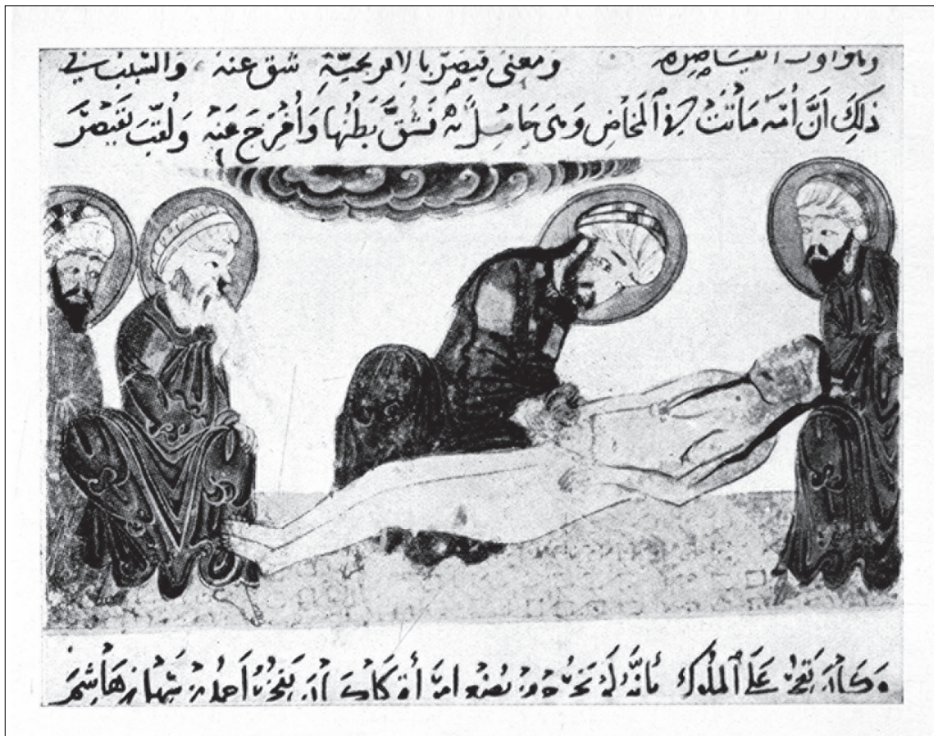 وهو اول القياصره ومعنى قيصر بالافرنجية شق عنه والسبب في
ذلك أن أمه ماتت في المخاض وهي حامل به فشق بطنها وأخرج عنه ولقب بقيصر
وكان يفخر على الملوك بأنه لم يخرج من بضع امرأة وكان يفخر أحمد بن سهل بن هاشم